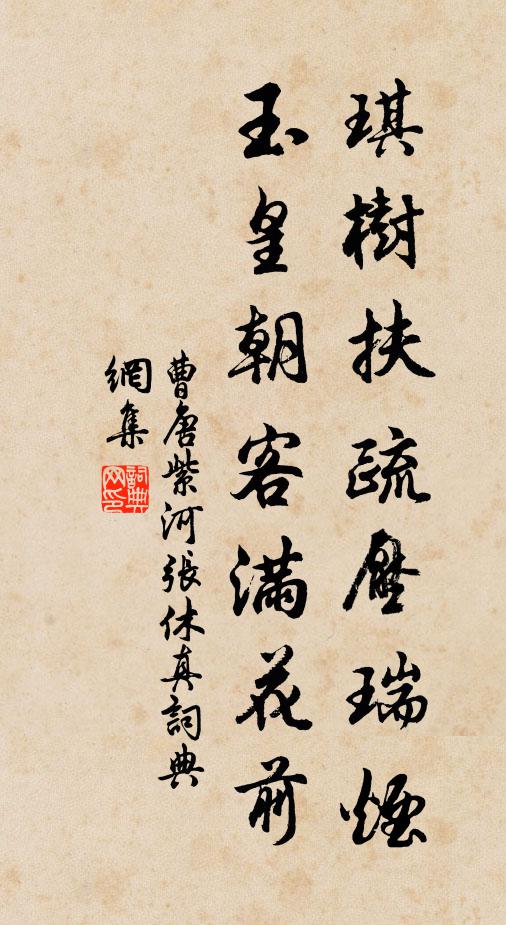 琪樹扶疏壓瑞煙
玉皇朝客滿花前
曹唐紫河張休真詞典
網集
詞典網印